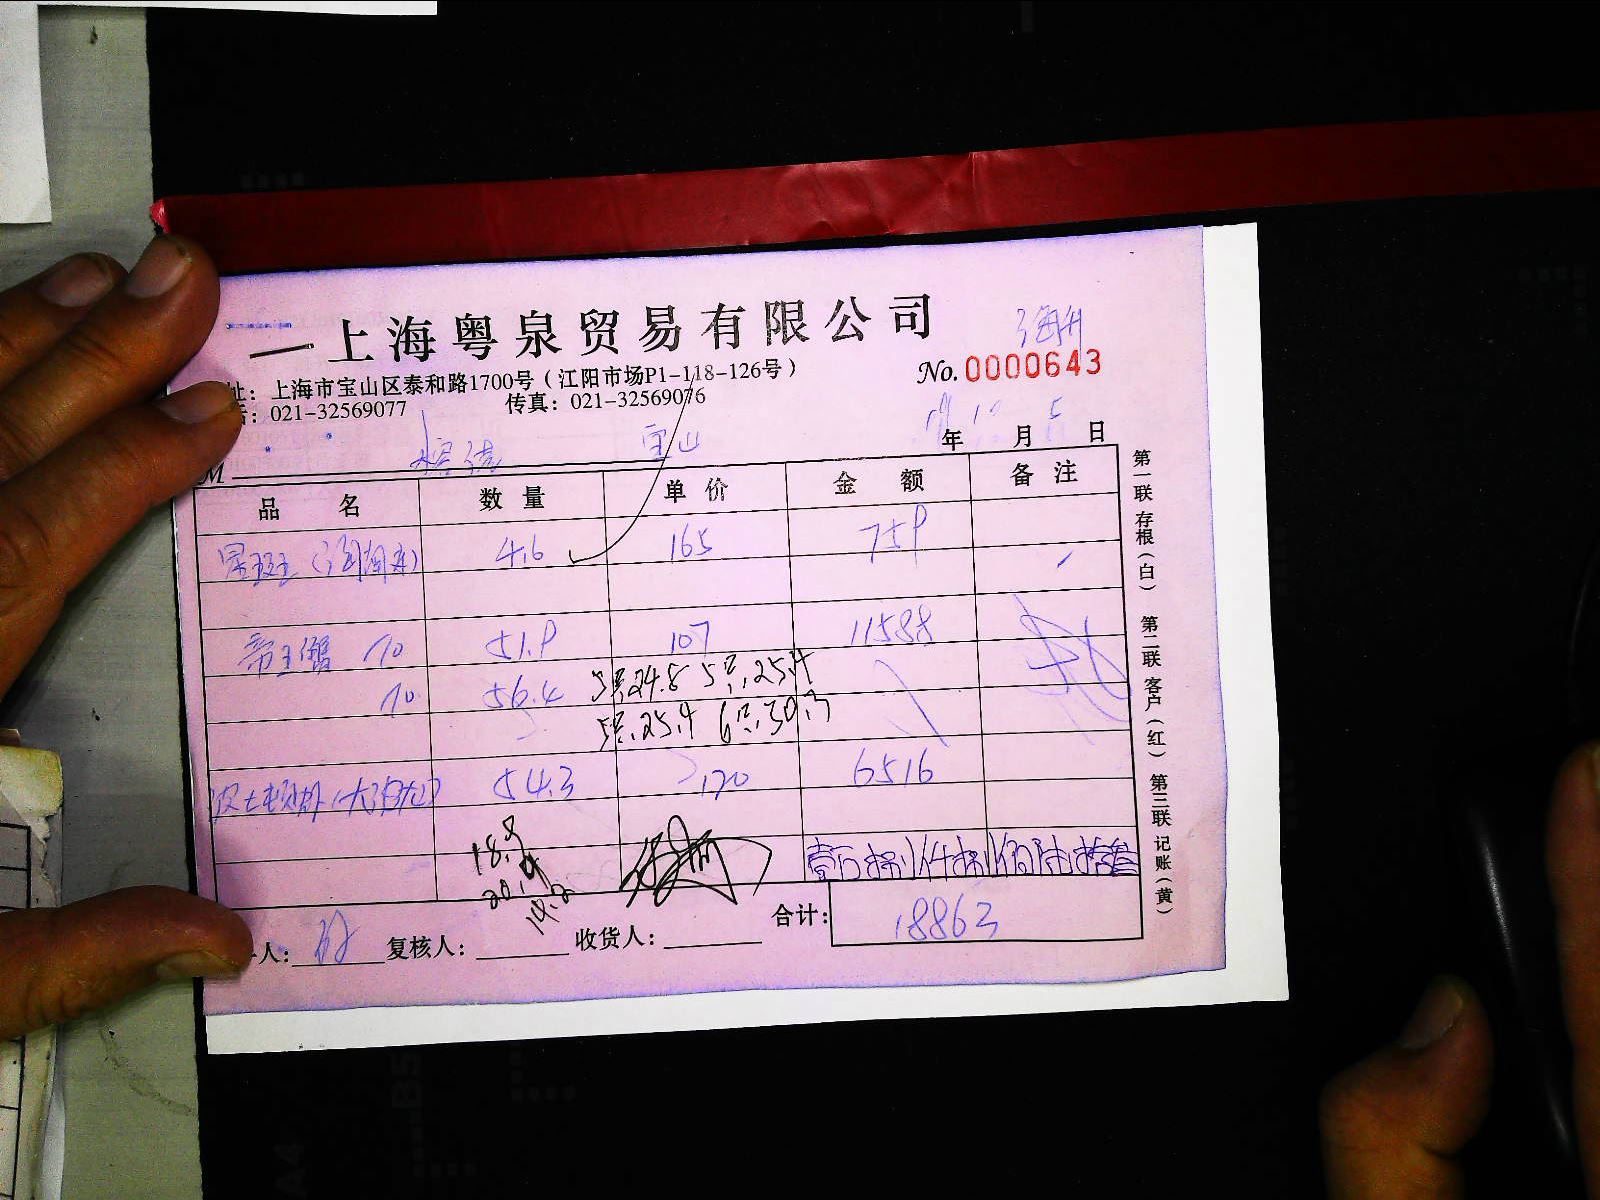 上海粤泉贸易有限公司
海升
址：上海市宝山区泰和路1700号（江阳市场P1-118-126号）
No. 0000643
话：021-32569077 传真：021-32569076
年 月 日
M 宝山
品 名 数 量 单 价 金 额 备 注
4.6 165 759
帝王蟹 10 51.9 107 11588
10 56.4 5只.24.8 5只.25.4
5只.25.4 6只.30.3
波士顿 54.3 120 6516
18.8
20.9
14.2
壹万捌仟捌佰陆拾叁
人： 复核人： 收货人： 合计： 18863
第一联 存根（白） 第二联 客户（红） 第三联 记账（黄）